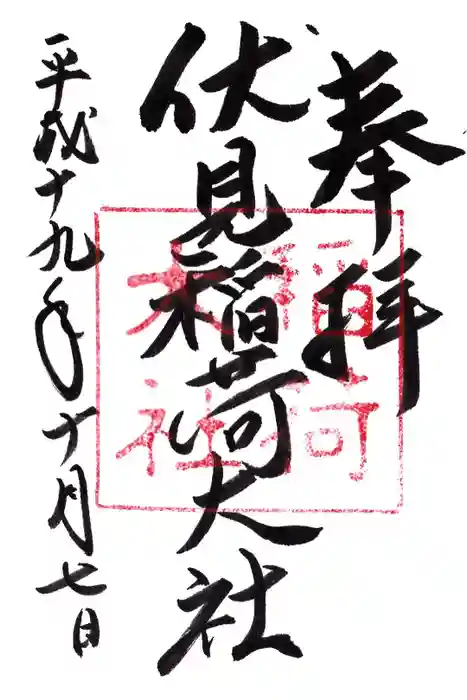 奉拝
伏見稲荷大社
平成十九年十月七日
稲荷
大社